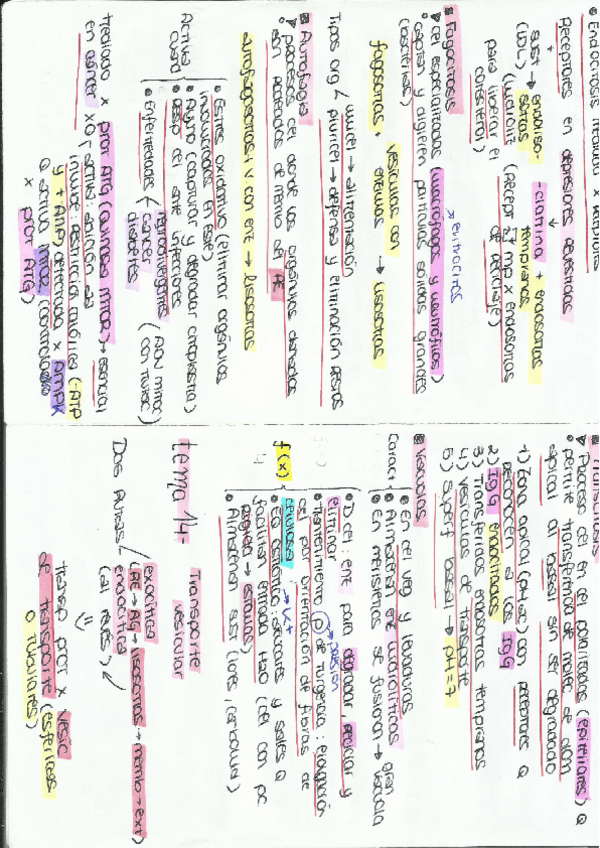 • Endocitosis mediada x receptores
Receptores en depresiones revestidas
+
sust → endoliso- - clatrina + endosomas
(LDL) somas tempranos
(hidroliz (recept = mp x endosomas
para liberar el de reciclaje)
colesterol)
Fagocitosis → eritrocitos
cel especializadas (macrófagos y neutrófilos)
captan y digieren partículas sólidas grandes
(bacterias)
fagosomas + vesículas con → lisosomas
enzimas
Tipos org unicel → alimentación
pluricel → defensa y eliminación restos
Autofagia
procesos cel donde los orgánulos dañados
son rodeados de memb del RE
autofagosomas + v con enz → lisosomas
Activa • Estrés oxidativo (eliminar orgánulos
cuand involucrados en este)
• Ayuno (capturar y degradar citoplasma)
• Resp cel ante infecciones
• Enfermedades neurodegenerativas (ADN mitoc
cáncer con mutac)
diabetes
mediado x prot ATG (quinasa mTOR) → esencial
en cáncer xQ
induce: restricción nutrientes (-ATP
y + AMP) detectada x AMPK
Q activa mTOR (controlada
x prot ATG)
Transcitosis
Proceso cel en cel polarizadas (epiteliares) Q
permite transferencia de molec de dom
apical al basal sin ser degradado
1) Zona apical (pH ac) con receptores Q
reconocen a las IgG
2) IgG endocitadas
3) Transferidas endosomas tempranos
4) Vesículas de transporte
5) Superf basal → pH = 7
Vacuolas
Caract • En cel veg y levaduras
• Almacenan enz hidrolíticas
• En meristemos se fusionan → gran vacuola
f(x) • D cel: enz para degradar, reciclar y
eliminar → presión
• Mantenimiento (p) de turgencia: elongación
cel por orientación de fibras de
celulosa → K+
• Eq osmótico: secuares y sales Q
facilitan entrada H2O (cel con pc
agua → estomas)
• Almacenan sust (iones, carbohid)
tema 14- Transporte
vesicular
Dos Rutas exocítica
(RE → AG → lisosomas → memb → ext)
endocítica
(al revés)
transp prot x vesíc
de transporte (esféricas
o tubulares)